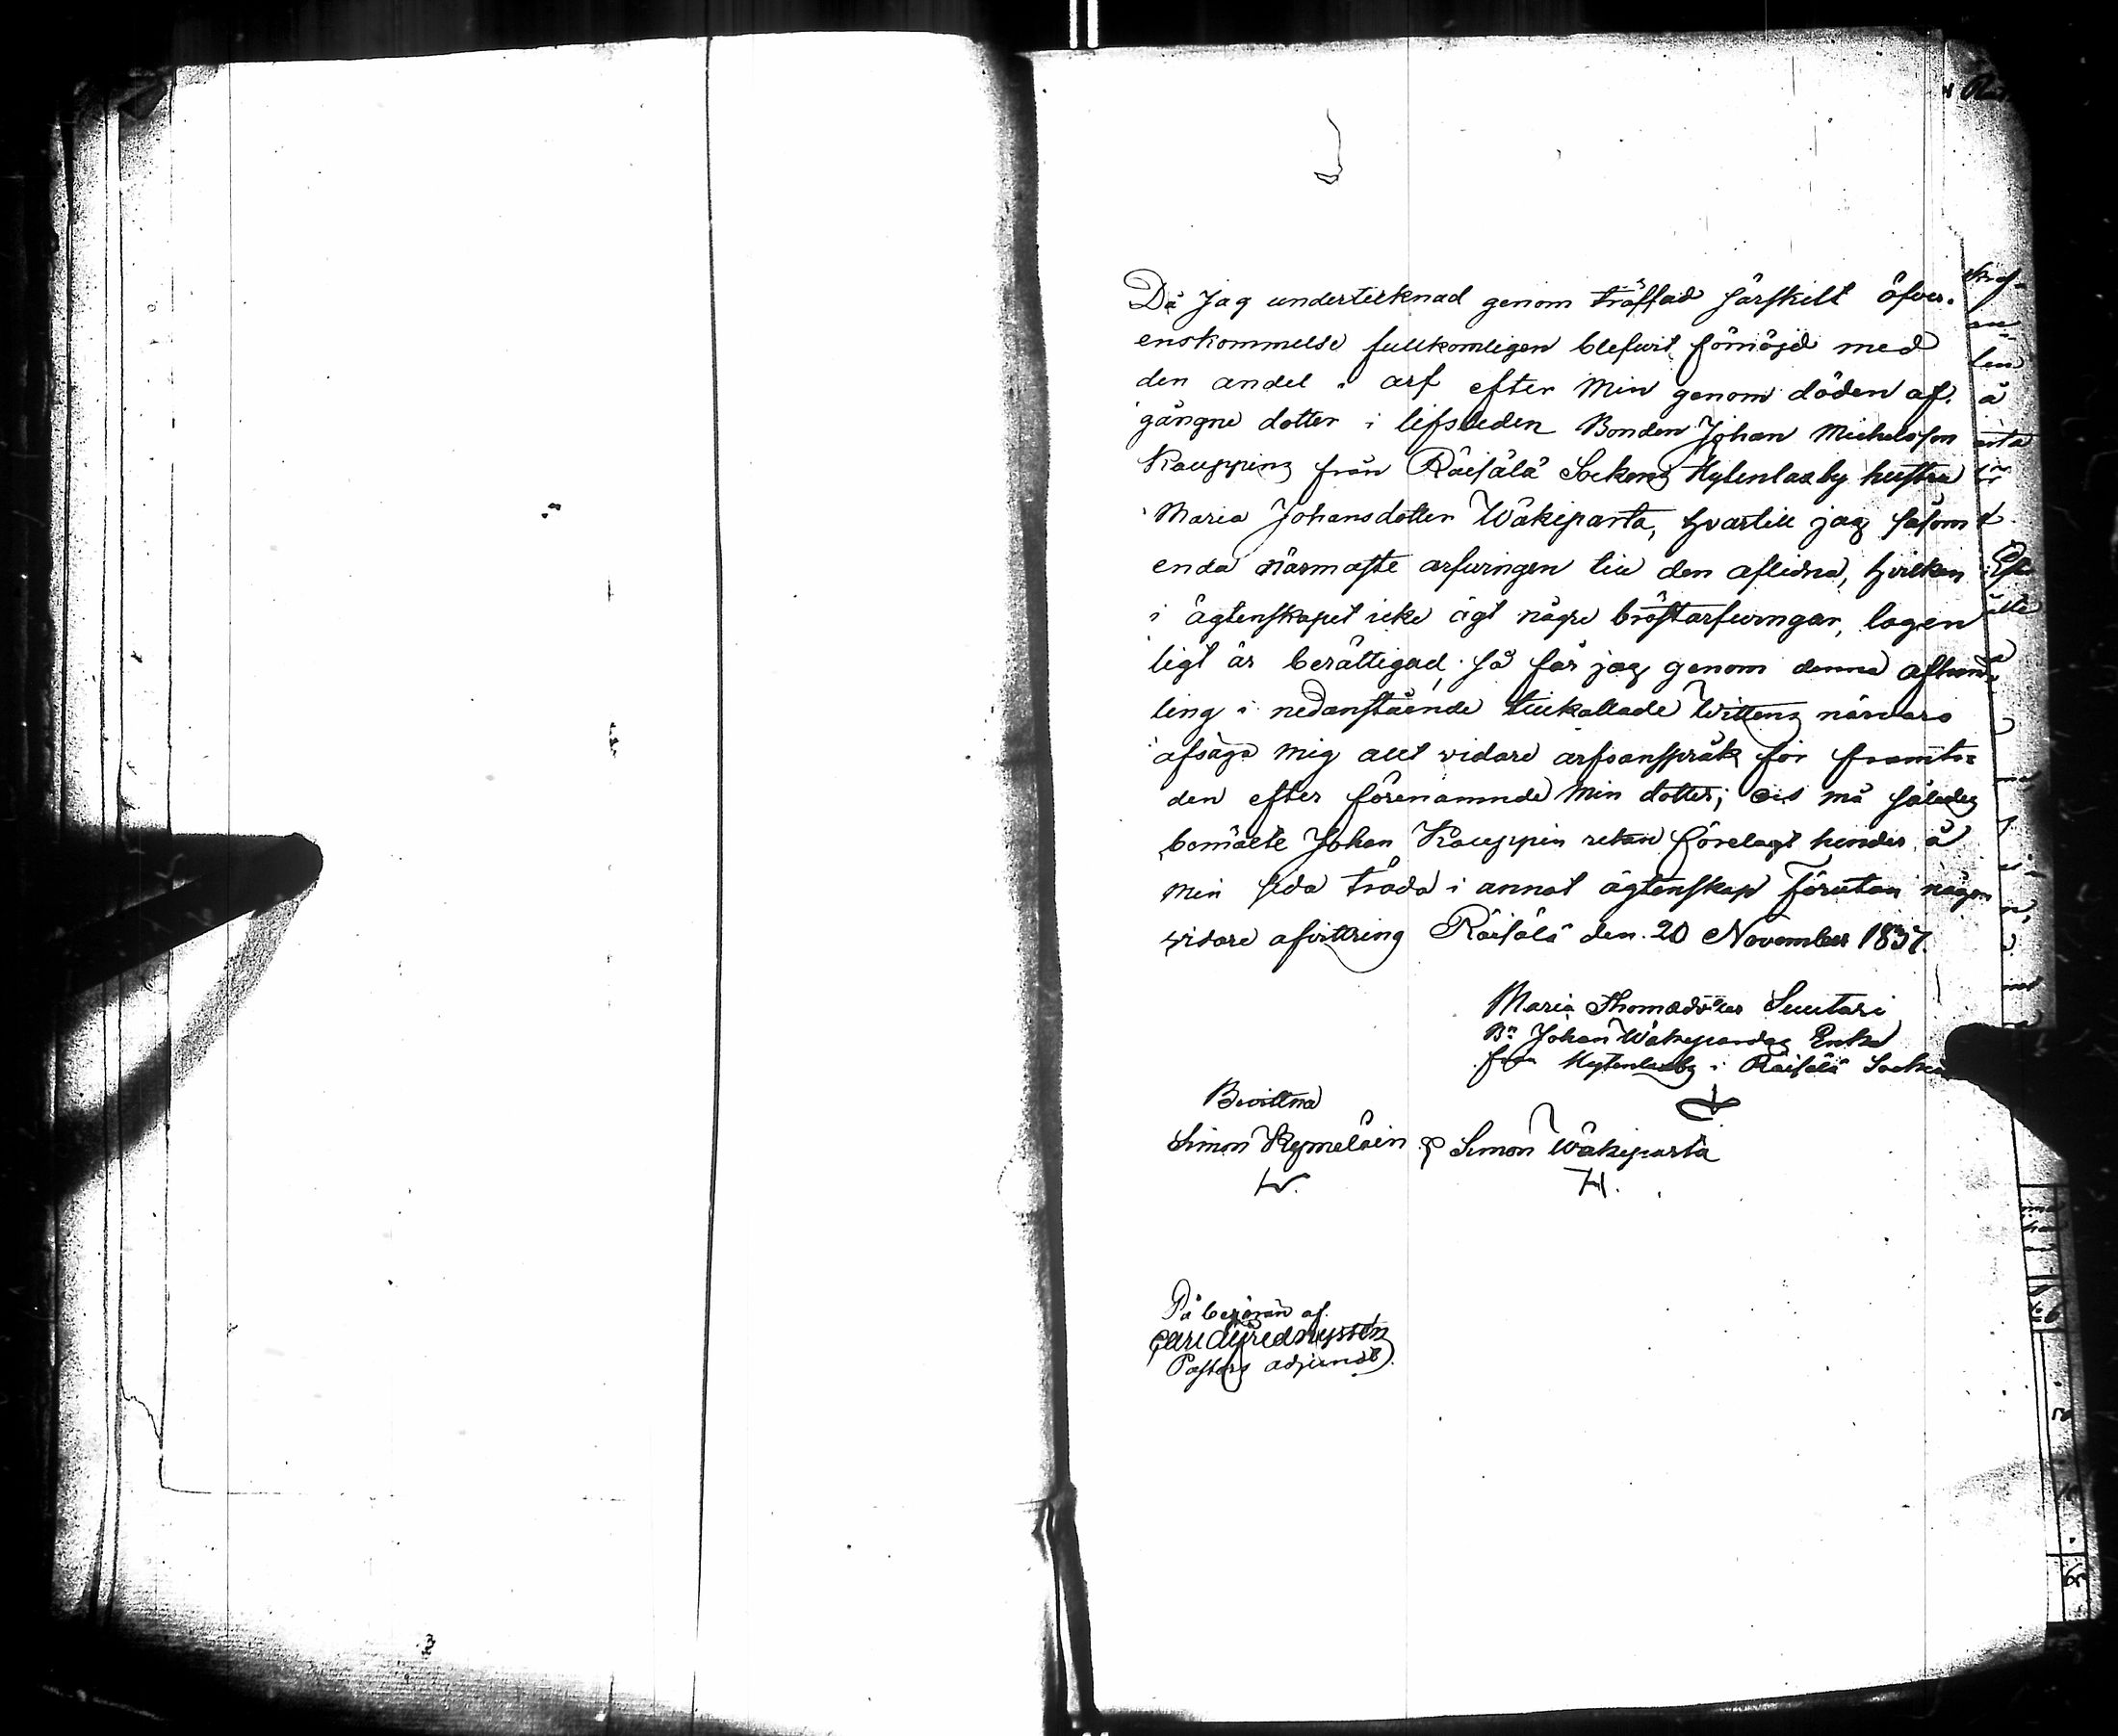 Då Jag undertecknad genom träffad särskilt öfver-
enskommelse fullkomligen blefvit förnöjd med
den andel i arf efter Min genom döden af-
gångne dotter i lifstiden Bonden Johan Michelsson
Kauppins från Räisälä Sockens Hytenlax by hustru
Maria Johansdotter Wäkiparta, hvartill jag såsom
enda närmaste arfvingen till den aflidna, hvilken
i ägtenskapet icke ägt någre bröstarfvingar, lagen
ligt är berättigad; så får jag genom denna afhand
ling i nedanstående tillkallade Wittens närvaro
afsäga mig allt vidare arfsanspråk för framti-
den efter förenämnde Min dotter; och må således
bemälte Johan Kauppin utan förelagt hinder å
Min sida träda i annat ägtenskap förutan någon
vidare afvittring Räisälä den 20 November 1857.
Maria Thomædotter Suutari
Bn Johan Wäkipardas Enka
från Hytenlaxby i Räisälä Socken
Bevittna
Simon Kymeläin & Simon Wäkiparta
På begäran af.
Carl Alfred Nysten
Pastors adjunct.
3